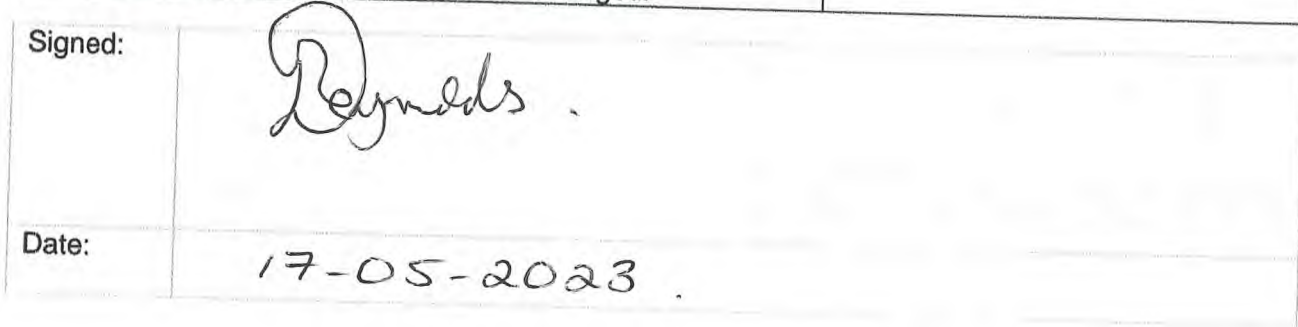 Signed:
Reynolds.
Date:
17-05-2023.